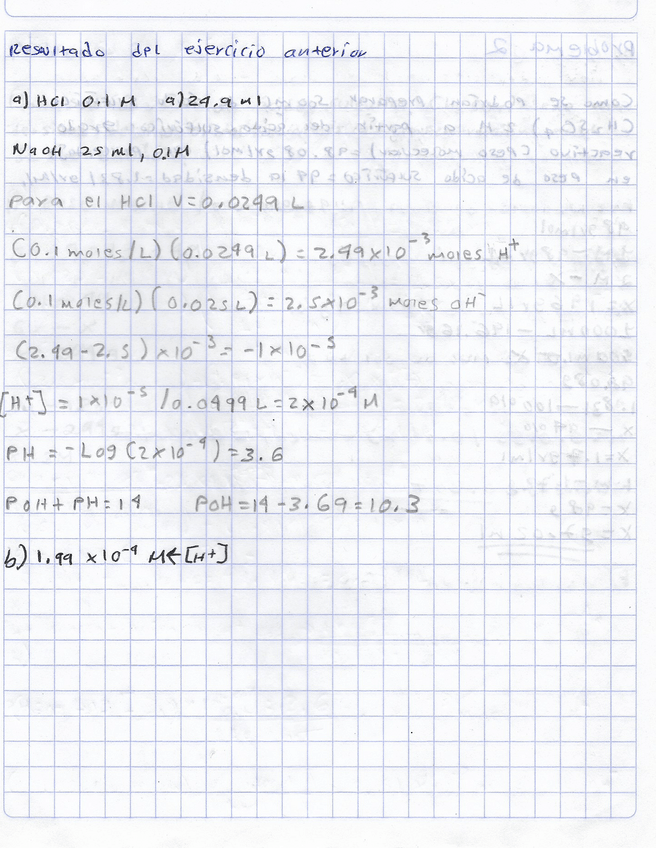 Resultado del ejercicio anterior
a) HCl 0.1 M a) 24.9 ml
NaOH 25 ml, 0.1M
para el HCl V=0.0249 L
(0.1 moles/L) (0.0249 L) = 2.49x10⁻³ moles H⁺
(0.1 moles/L) (0.025 L) = 2.5x10⁻³ moles OH⁻
(2.49-2.5) x10⁻³ = -1x10⁻⁵
[H+] = 1x10⁻⁵ / 0.0499 L = 2x10⁻⁴ M
PH = -Log (2x10⁻⁴) = 3.6
POH + PH = 14 POH = 14 - 3.69 = 10.3
b) 1.99 x10⁻⁴ M ← [H+]